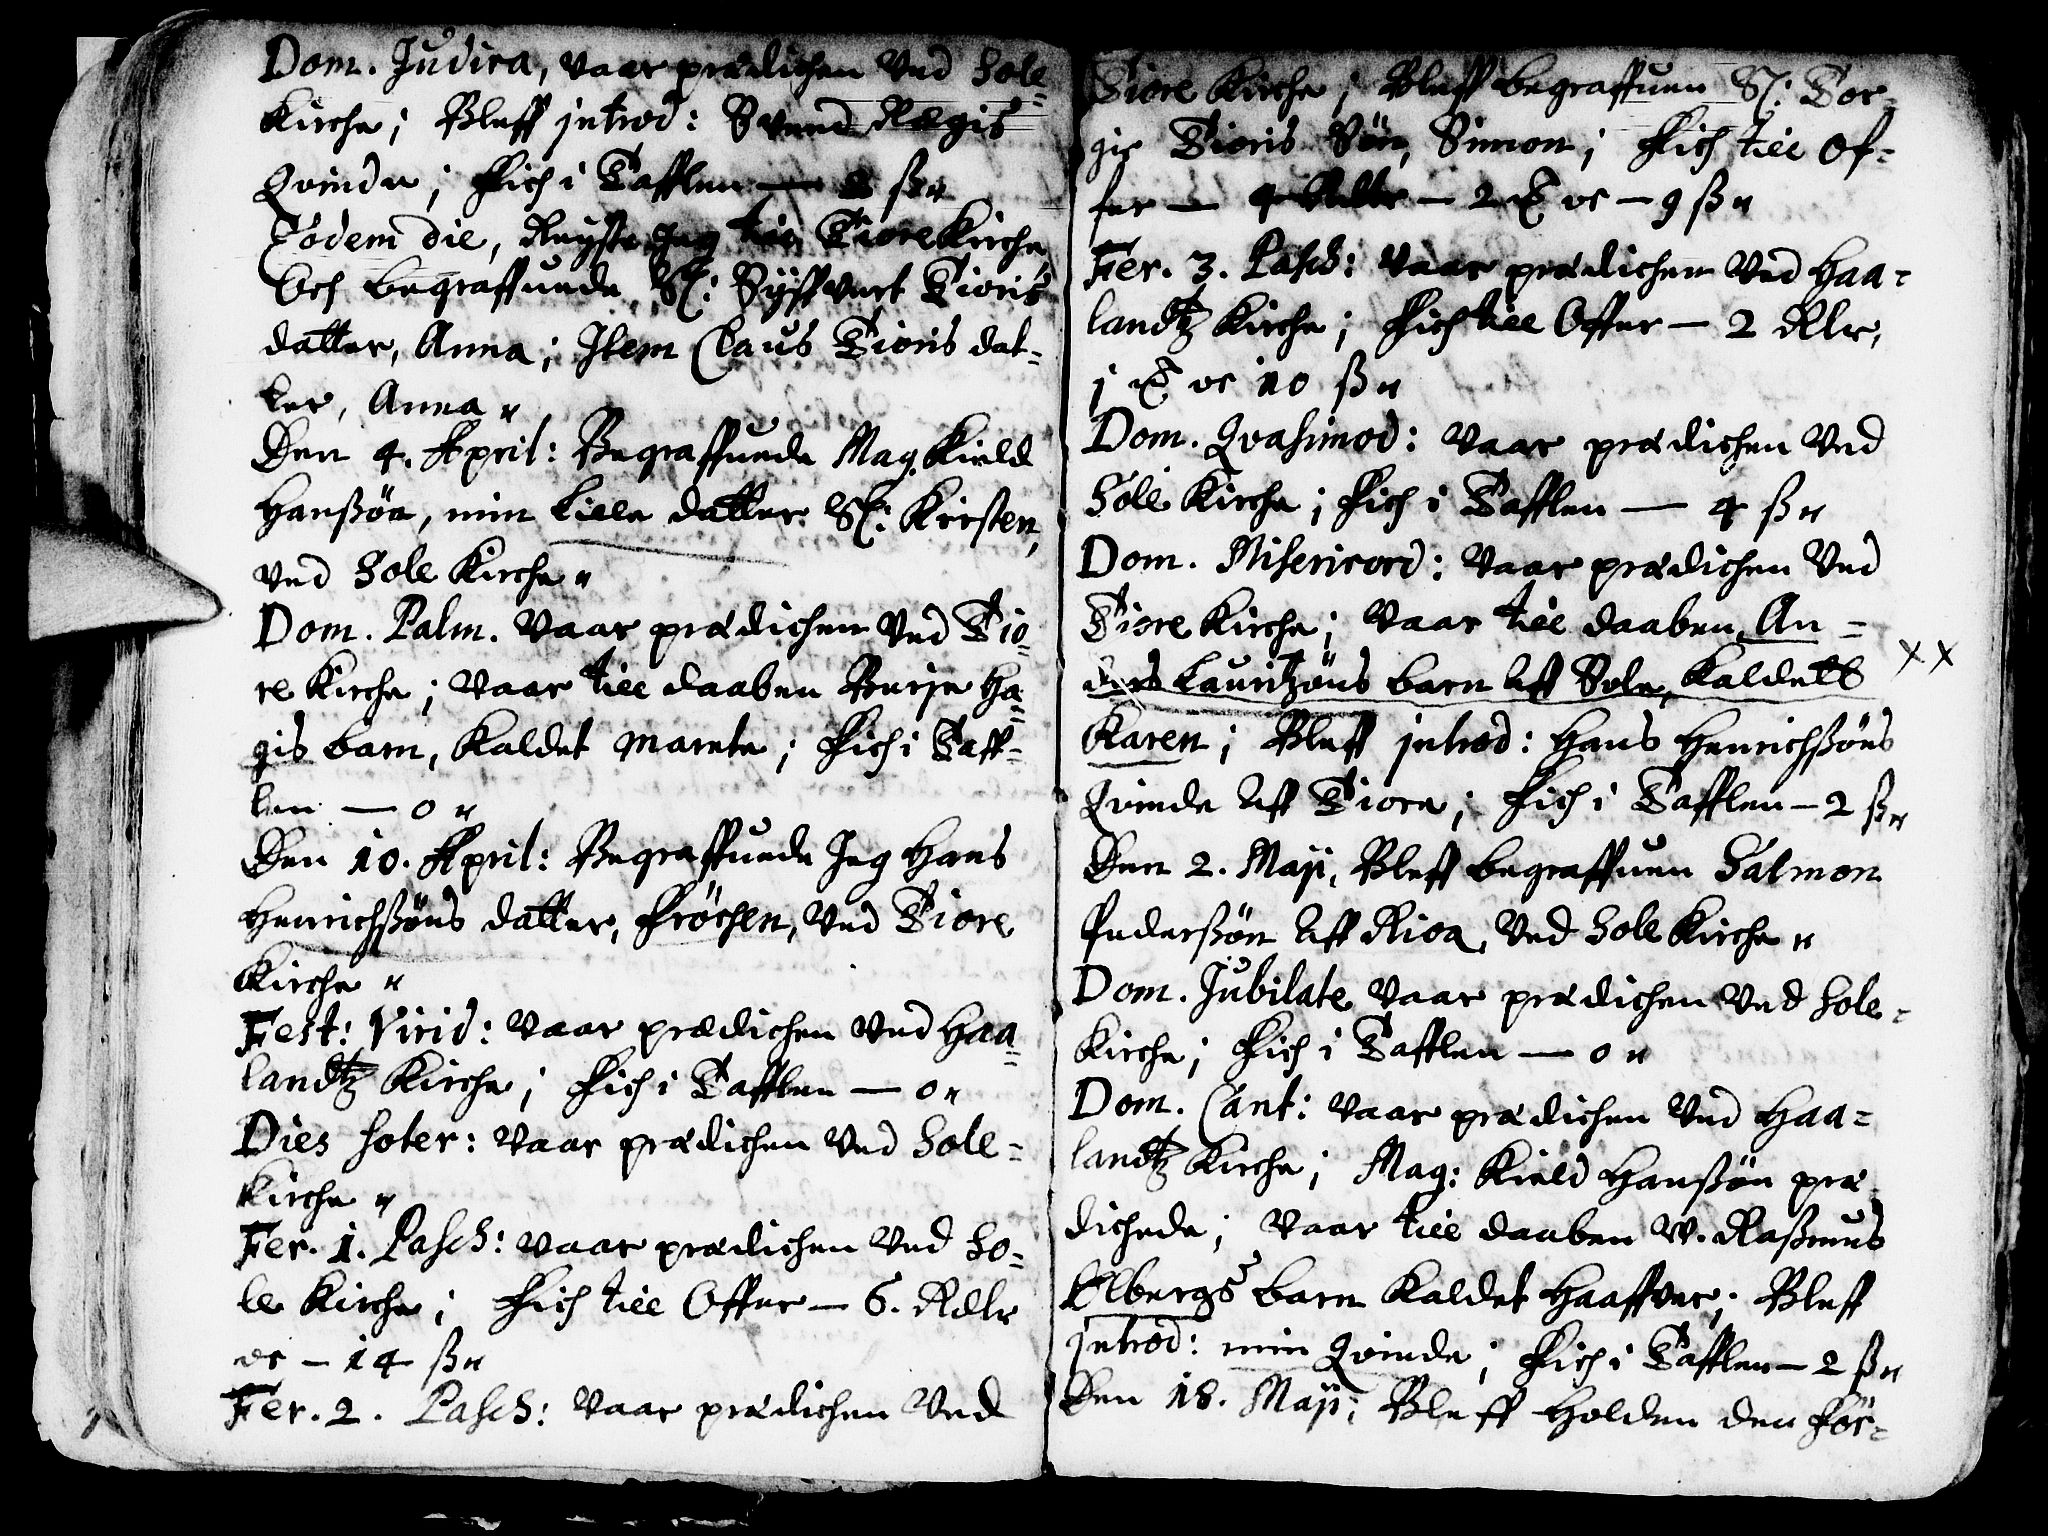 Dom. Judica, vaar prædichen ved Sole-
Kirche; Bleff introd: Svend Regis
Qvinde; Fich i Tafflen — ß"
Eodem die, Reyste Jeg till Tiore Kirche
och begraffuede, Sl: Syffvert Tioris
datter, Anna; Item Claus Tioris dat-
ter, Anna"
Den 4. April: Begraffuede Mag. Kield
Hanßøn, min Lille datter Sl: Kirsten,
ved Sole Kirche"
Dom. Palm. Vaar prædichen ved Tio-
re Kirche; Vaar till daaben Berje Ha-
gis barn, Kaldet Marete; Fich i Taff-
len — 0"
Den 10. April: Begraffuede Jeg Hans
Henrichßøns datter, Frøchen, ved Tiore
Kirche"
Fest: Virid: Vaar prædichen ved Haa-
landtz Kirche; Fich i Tafflen — 0"
Dies Soter: Vaar prædichen ved Sole-
Kirche"
Fer. 1. Pasch: Vaar prædichen ved So-
le Kirche; Fich till Offer — 6. Rdlr
oc — 14 ß"
Fer. 2. Pasch: Vaar prædichen ved
Tiore Kirche; Bleff begraffuen Sl: Tor-
gir Tioris Søn, Simon; Fich till Of-
fer — — 2 oc — 9 ß"
Fer. 3. Pasch: Vaar prædichen ved Haa-
landtz Kirche; Fich till Offer — 2 Rlr,
j oc 10 ß"
Dom. Qvasimod: Vaar prædichen ved
Sole Kirche; Fich i Tafflen — 4 ß"
Dom. Misericord: Vaar prædichen ved
Tiore Kirche; Vaar till daaben An-
ders Lauritzøns barn aff Sole, Kaldett xx
Karen; Bleff introd: Hans Henrichßøns
Qvinde aff Tiore; Fich i Tafflen — 2 ß"
Den 2. Maji, Bleff begraffuen Salmon
Pederßøn aff Rioa, ved Sole Kirche"
Dom. Jubilate Vaar prædichen ved Sole-
Kirche; Fich i Tafflen — 0"
Dom. Cant: Vaar prædichen ved Haa-
landtz Kirche; Mag: Kield Hanßøn præ
dichede; Vaar till daaben W. Raßmus
Olbergs barn Kaldet Haaffver; Bleff
introd: min Qvinde; Fich i Tafflen — 2 ß"
Den 18. Maji; Bleff Holden den før-